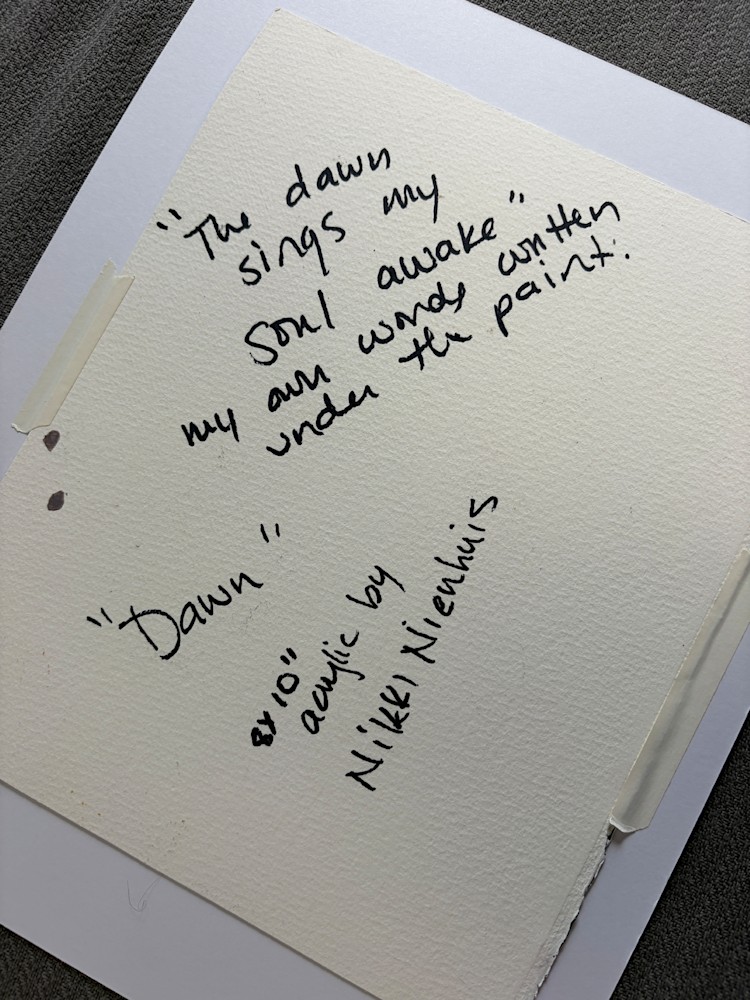 "The dawn
sings my
soul awake"
my own words written
under the paint.
"Dawn"
8x10"
acrylic by
Nikki Nienhuis